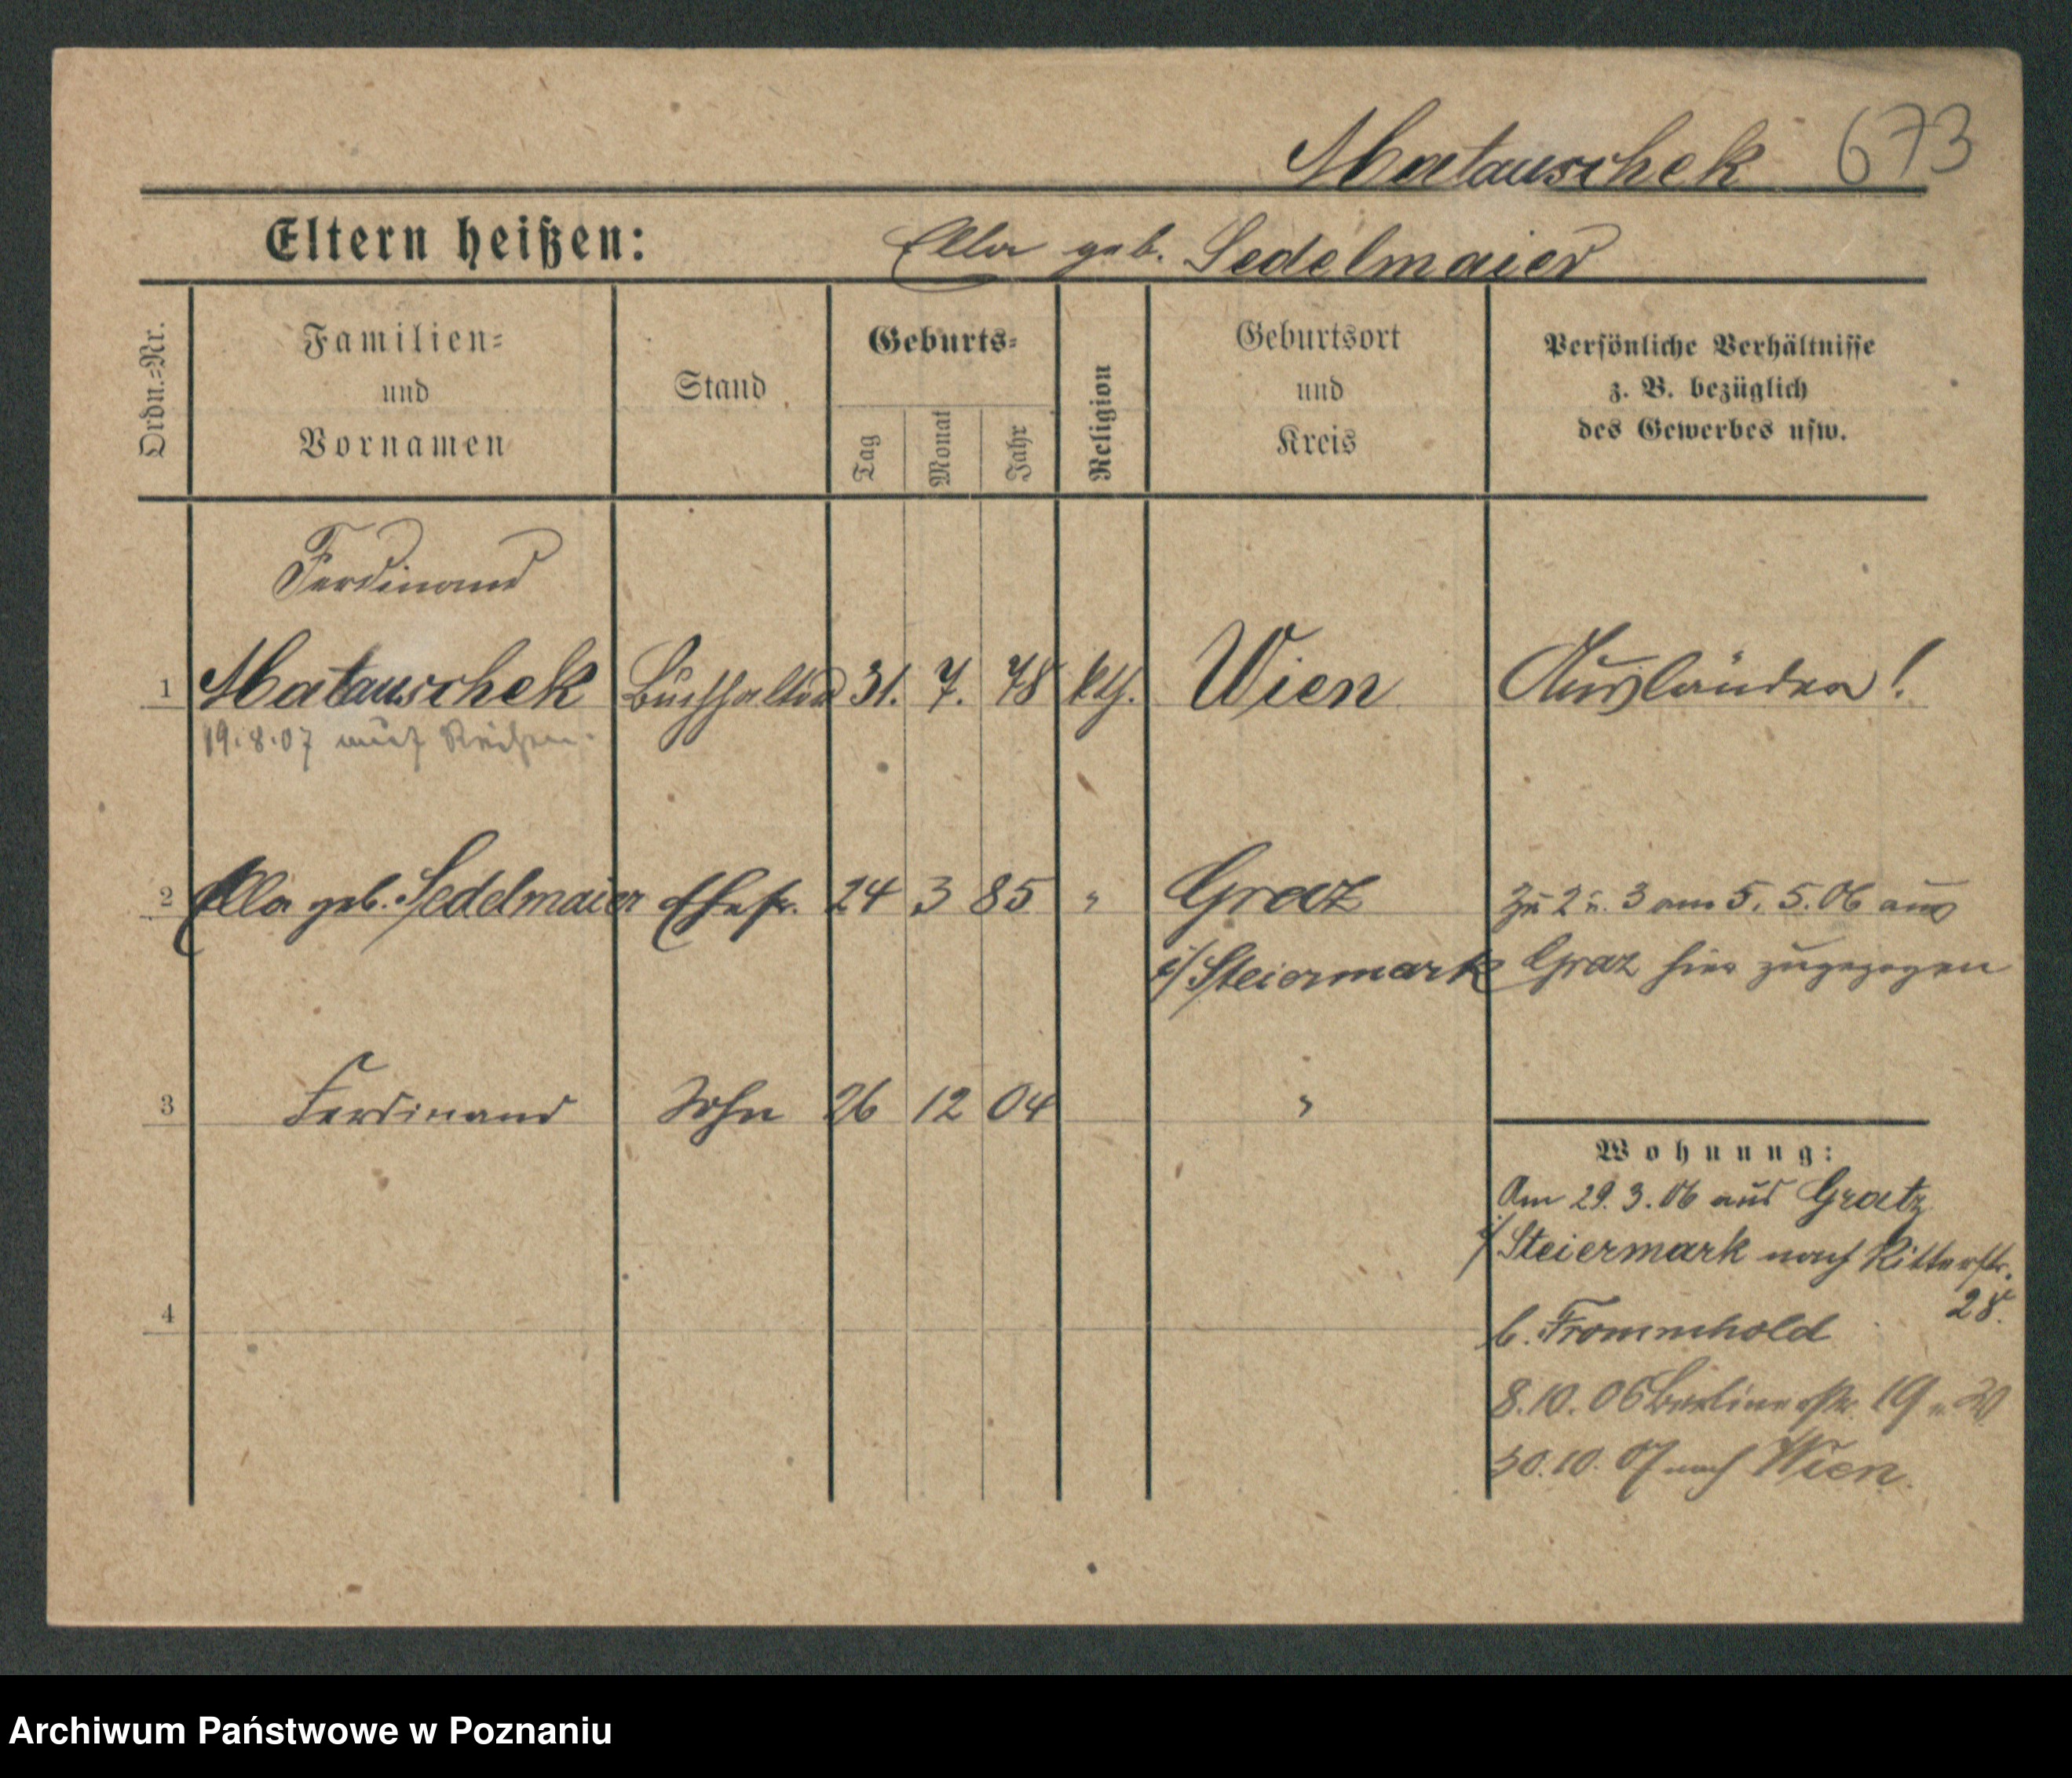 Matauschek 673
Eltern heißen: Ella geb. Sedelmaier
Ordn.=Nr.
Familien=
und
Vornamen
Stand
Geburts=
Tag
Monat
Jahr
Religion
Geburtsort
und
Kreis
Persönliche Verhältnisse
z. B. bezüglich
des Gewerbes usw.
Ferdinand
1 Matauschek Buchhalter 31. 7. 78 kth. Wien Ausländer!
19.8.07 auf Reisen.
2 Ella geb. Sedelmaier Ehefr. 24 3 85 " Graz Zu 2 u. 3 am 5. 5. 06 aus
i/Steiermark Graz hier zugezogen
3 Ferdinand Sohn 26 12 04 "
Wohnung:
Am 29. 3. 06 aus Gratz
i/Steiermark nach Ritterstr.
28.
4
b. Frommhold
8.10. 06 Berlinerstr. 19
30.10. 07 nach Wien.
Archiwum Państwowe w Poznaniu